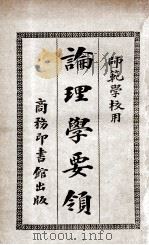 師範學校用
論理學要領
商務印書館出版
mtoou.info